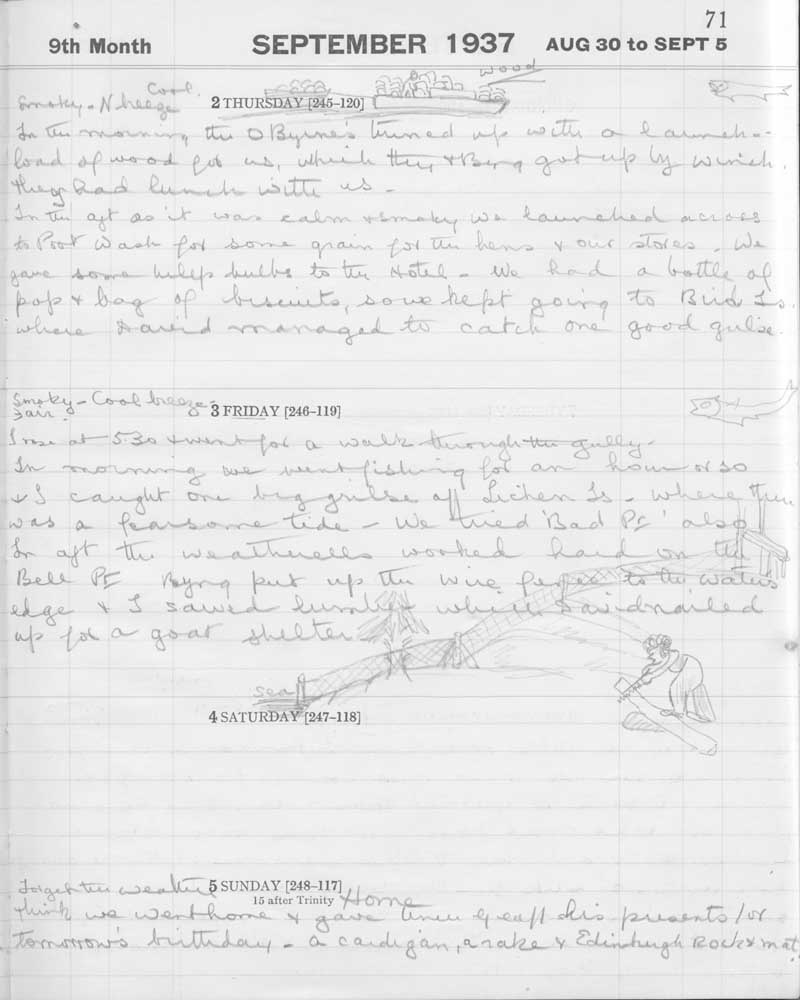 71
9th Month SEPTEMBER 1937 AUG 30 to SEPT 5
wood
Cool
Smoky - N breeze 2 THURSDAY [245–120]
In the morning the O'Byrne's turned up with a launch-
load of wood for us, which they & Byng got up by winch.
They had lunch with us -
In the aft as it was calm & smoky we launched across
to Port Wash for some grain for the hens & our stores. We
gave some tulip bulbs to the Hotel - We had a bottle of
pop & bag of biscuits, so we kept going to Bird Is.
where David managed to catch one good grilse.
Smoky - Cool breeze -
Fair 3 FRIDAY [246–119]
I rose at 5.30 & went for a walk through the gully -
In morning we went fishing for an hour or so
& I caught one big grilse off Lichen Is - where there
was a fearsome tide - We tried 'Bad Pt' also
In aft the weatherells worked hard on the
Bell Pt Byng put up the wire fence to the waters
edge & I sawed lumber which David nailed
up for a goat shelter
sea
4 SATURDAY [247–118]
Forget the weather 5 SUNDAY [248–117]
15 after Trinity Home
think we went home & gave his presents for
tomorrow's birthday - a cardigan, a rake & Edinburgh Rock & mat.